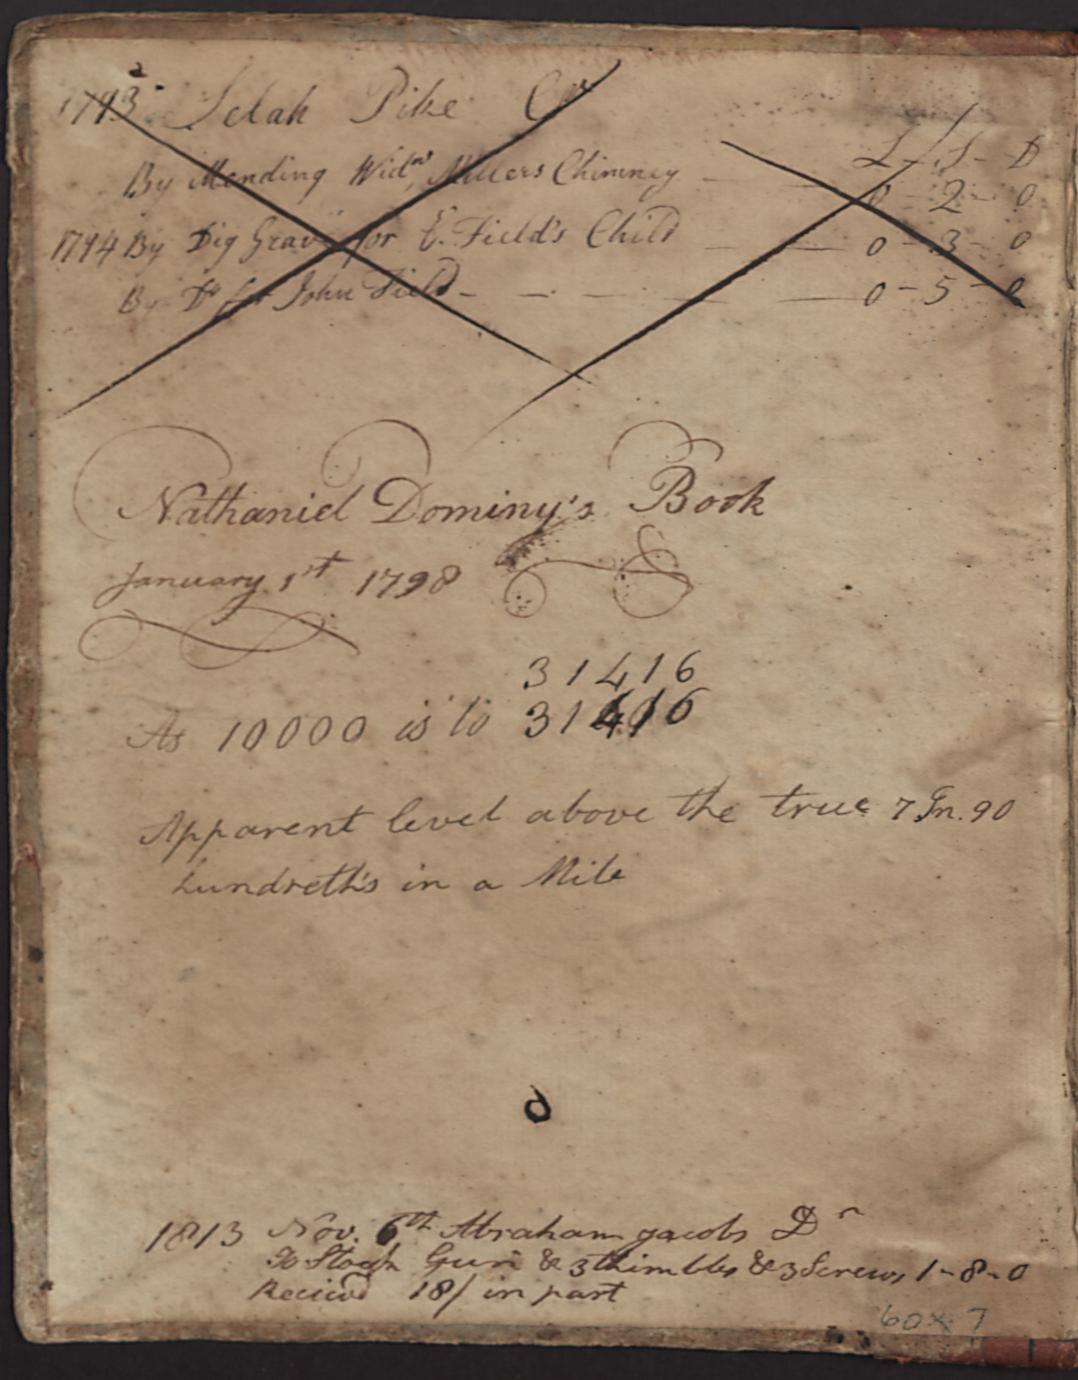 1793 Selah Pike Cr
L - S - D
By Mending Widw Millers Chimney 0 - 2 - 0
1794 By Dig Grave for E. Field's Child 0 - 3 - 0
By Do for John Field 0 - 5 - 0
Nathaniel Dominy's Book
January 1st 1798
31416
As 10000 is to 31416
Apparent level above the true 7 In. 90
hundreth's in a Mile
d
1813 Nov. 6th Abraham Jacobs Dr
To Stock Gun & 3 thimbles & 3 Screws 1-8-0
Recievd 18/ in part
box 7